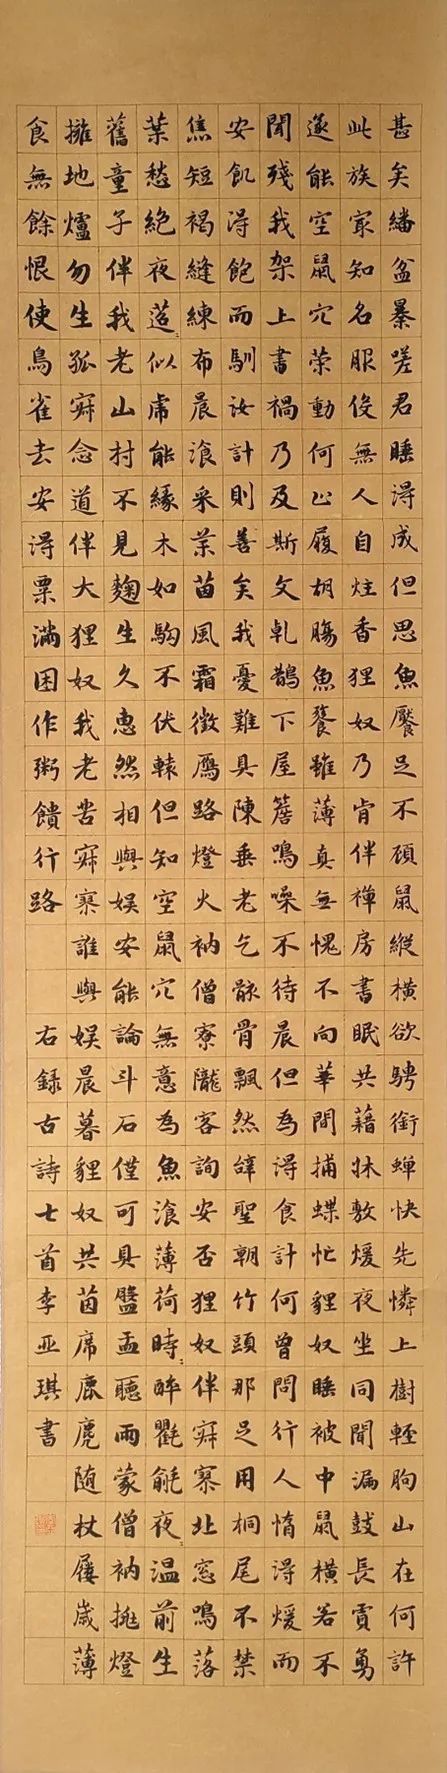 甚矣繙盆暴嗟君睡得成但思魚饜足不顧鼠縱橫欲騁銜蟬快先憐上樹輕朐山在何許
此族家知名服役無人自炷香狸奴乃肯伴禪房書眠共藉牀敷煖夜坐同聞漏鼓長賈勇
遂能空鼠穴荣動何止履胡腸魚餮雖薄真無愧不向華間捕蝶忙貍奴睡被中鼠橫若不
聞殘我架上書禍乃及斯文乾鵲下屋簷鳴噪不待晨但為得食計何曾問行人惰得煖而
安飢得飽而馴汝計則善矣我憂難具陳垂老乞骸骨飄然辭聖朝竹頭那足用桐尾不禁
焦短褐縫練布晨飡采苗風霜徵鴈路燈火衲僧寮隴客詢安否狸奴伴寂寞北窓鳴落
葉愁絕夜迢〻似虎能緣木如駒不伏轅但知空鼠穴無意為魚飡薄荷時〻醉氍毹夜〻温前生
舊童子伴我老山村不見麴生久惠然相與娱安能論斗石僅可具盤盂聽雨蒙僧衲挑燈
擁地爐勿生孤寂念道伴大狸奴我老苦寂寞誰與娱晨暮貍奴共茵席鹿麂随杖屨歲薄
食無餘恨使鳥雀去安得粟滿囷作粥饋行路 右錄古詩七首李亚琪書